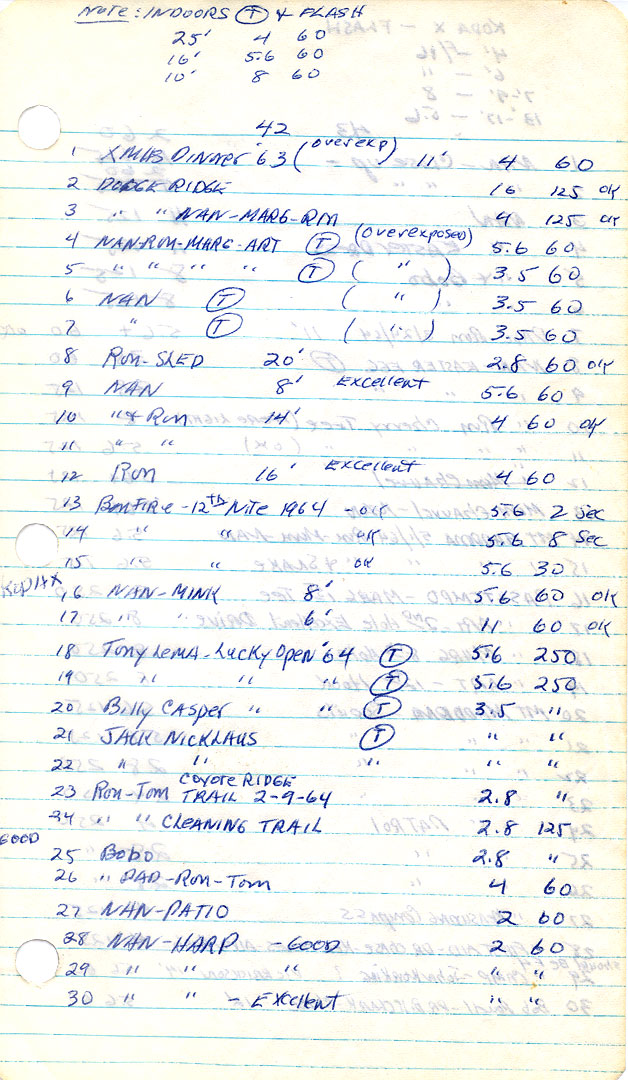 NOTE: INDOORS (T) & FLASH
25' 4 60
16' 5.6 60
10' 8 60
42
1 XMAS DINNER '63 (overexp) 11' 4 60
2 DODGE RIDGE 16 125 OK
3 " " NAN-MARG-RM 4 125 OK
4 NAN-RON-MARG-ART (T) (Overexposed) 5.6 60
5 " " " " (T) ( " ) 3.5 60
6 NAN (T) ( " ) 3.5 60
7 " (T) ( " ) 3.5 60
8 Ron-SLED 20' 2.8 60 OK
9 NAN 8' Excellent 5.6 60
10 "& Ron 14' 4 60 OK
11 " "
12 Ron 16' Excellent 4 60
13 BonFire-12th Nite 1964 -OK 5.6 2 Sec
14 " " OK 5.6 8 Sec
15 " " OK 5.6 30
KODAX 16 NAN-MINK 8' 5.6 60 OK
17 " " 6' 11 60 OK
18 Tony Lema-Lucky Open '64 (T) 5.6 250
19 " " " (T) 5.6 250
20 Billy Casper " " (T) 3.5 "
21 JACK NICKLAUS (T) " "
22 " " " " "
23 Ron-Tom COYOTE RIDGE TRAIL 2-9-64 2.8 "
24 " " CLEANING TRAIL 2.8 125
GOOD
25 Bobo 2.8 "
26 " DAD-Ron-Tom 4 60
27 NAN-PATIO 2 60
28 NAN-HARP -GOOD 2 60
29 " " " " "
30 " " - Excellent " "